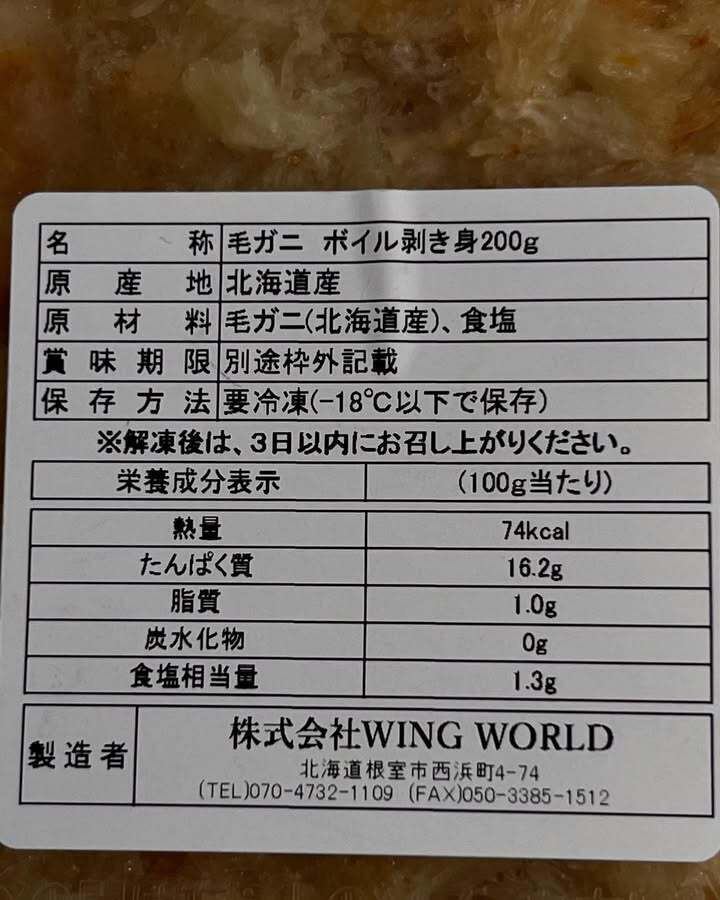 名称 毛ガニ ボイル剥き身200g
原産地 北海道産
原材料 毛ガニ(北海道産)、食塩
賞味期限 別途枠外記載
保存方法 要冷凍(-18℃以下で保存)
※解凍後は、3日以内にお召し上がりください。
栄養成分表示 (100g当たり)
熱量 74kcal
たんぱく質 16.2g
脂質 1.0g
炭水化物 0g
食塩相当量 1.3g
製造者 株式会社WING WORLD
北海道根室市西浜町4-74
(TEL)070-4732-1109 (FAX)050-3385-1512